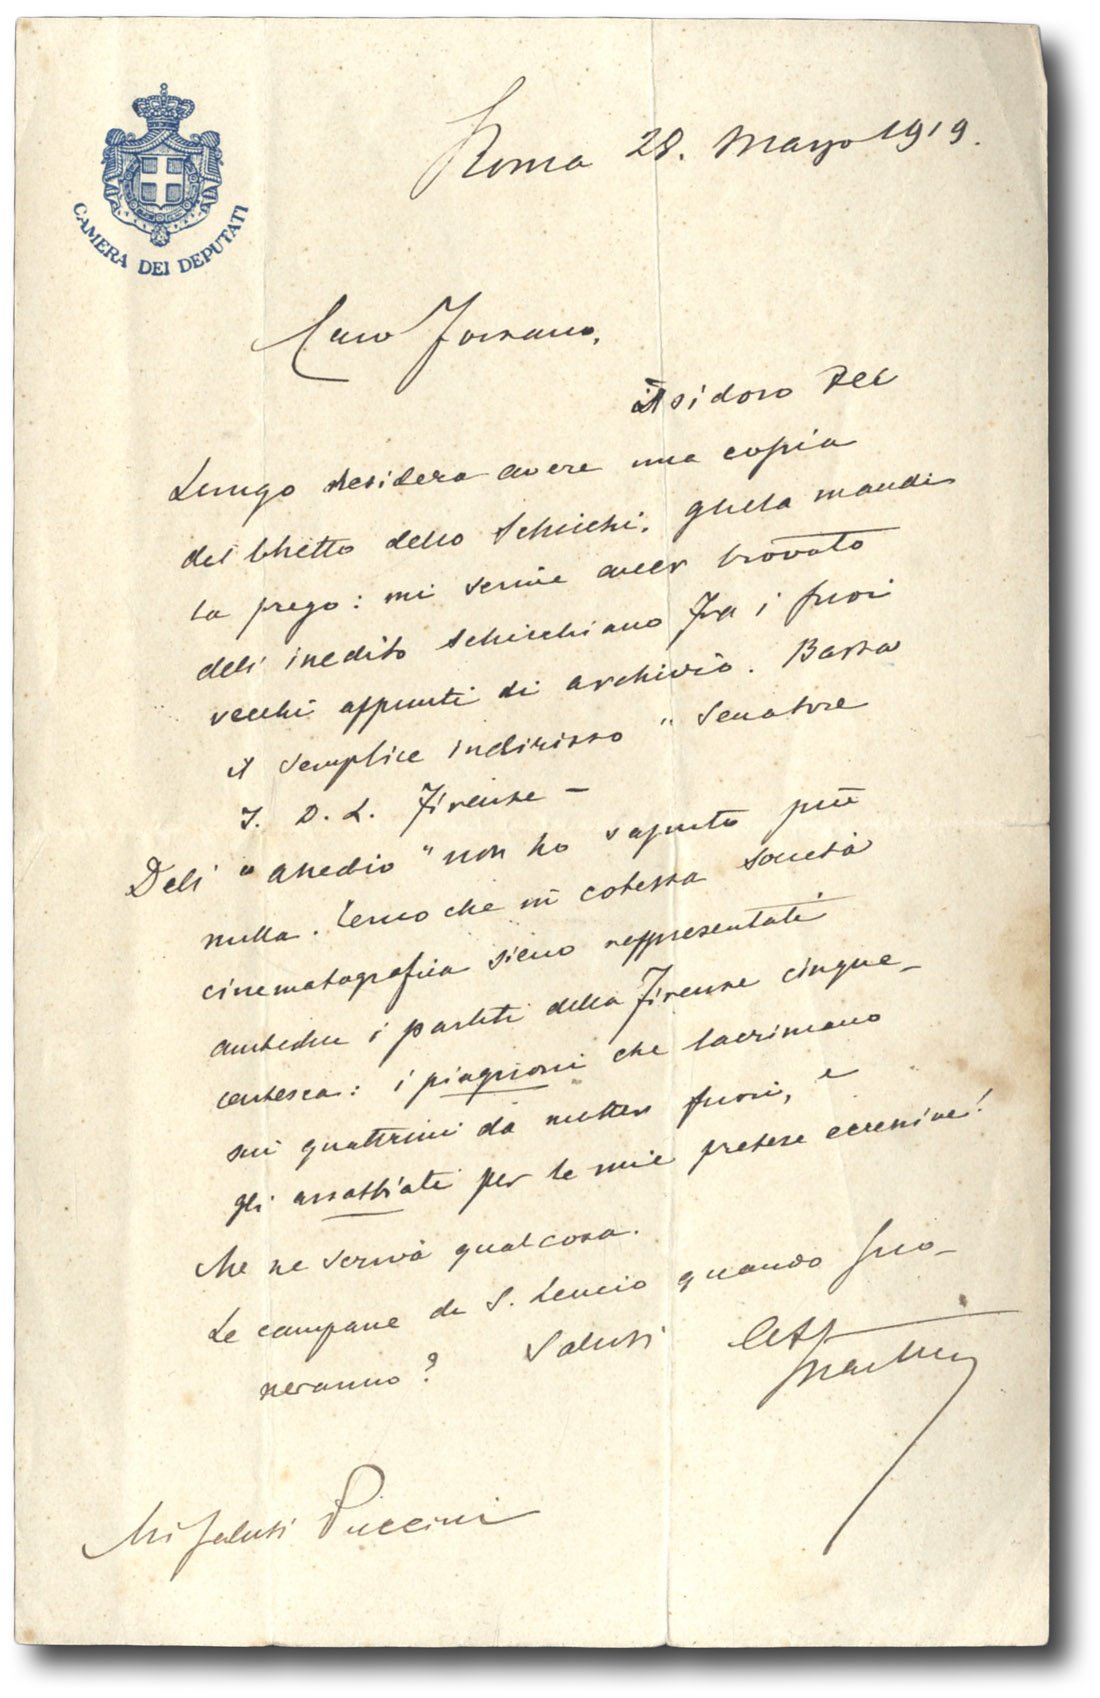 CAMERA DEI DEPUTATI
Roma 28. Marzo 1919.
Caro Forzano,
Isidoro Del
Lungo desidera avere una copia
del libretto dello Schicchi. Gliela mandi
la prego: mi scrive aver trovato
dell' inedito Schicchiano fra i suoi
vecchi appunti di archivio. Basta
il semplice indirizzo "Senatore
I. D. L. Firenze –
Dell' "Assedio" non ho saputo più
nulla. Temo che in cotesta società
cinematografica sieno rappresentati
ambedue i partiti della Firenze cinque-
centesca: i piagnoni che lacrimano
sui quattrini da metter fuori, e
gli arrabbiati per le mie pretese eccessive!
Me ne scriva qualcosa.
Le campane di S. Leucio quando suo-
neranno? Saluti
Martini
Mi saluti Puccini